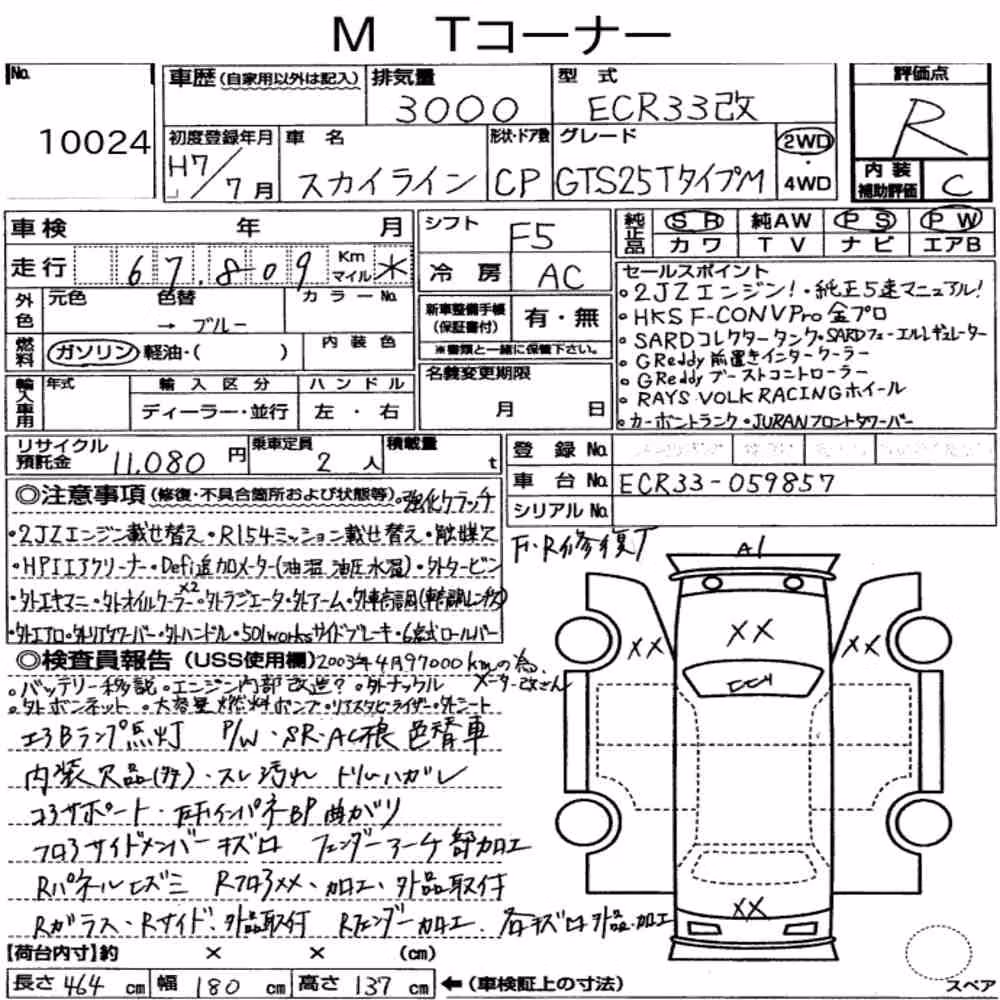 M Tコーナー
No. 10024
車歴(自家用以外は記入)
排気量 3000
型式 ECR33改
評価点 R
初度登録年月 H7/7月
車名 スカイライン
形状・ドア数 CP
グレード GTS25TタイプM
2WD・4WD
内装補助評価 C
車検 年 月
シフト F5
純正品 SR 純AW PS PW
カワ TV ナビ エアB
走行 67.809 Km マイル *
冷房 AC
セールスポイント
。2JZエンジン!・純正5速マニュアル!
。HKS F-CONVPro 金プロ
。SARDコレクタータンク・SARDフューエルレギュレーター
。GReddy前置きインタークーラー
。GReddyブーストコントローラー
。RAYS VOLK RACINGホイール
。カーボントランク・JURANフロントタワーバー
外色 元色 色替 → ブルー カラーNo.
新車整備手帳(保証書付) 有・無
※書類と一緒に保管下さい。
燃料 ガソリン 軽油・( ) 内装色
輸入車用 年式 輸入区分 ハンドル
ディーラー・並行 左・右
名義変更期限 月 日
リサイクル預託金 11,080円
乗車定員 2人
積載量 t
登録No.
車台No. ECR33-059857
シリアルNo.
◎注意事項(修復・不具合箇所および状態等)。強化クラッチ
・2JZエンジン載せ替え・R154ミッション載せ替え・触媒欠
・HPIエアクリーナー・Defi追加メーター(油温 油圧 水温)・外タービン
・外エキマニ・外オイルクーラー×2・外ラジエータ・外アーム・外車高調(車高調レンチ欠)
・外エアロ・外リアタワーバー・外ハンドル・501worksサイドブレーキ・6点式ロールバー
F・R修復了
◎検査員報告(USS使用欄)2003年4月97000kmの為、メーター改ざん
。バッテリー移設 。エンジン内部改造? 。外ナックル
。外ボンネット 。大容量燃料ポンプ 。リアスタビライザー 。外シート
エアBランプ点灯 P/W・SR・AC根 色替車
内装欠品(多々)・スレ汚れ ドリムハガレ
コアサポート・左右インパネBP曲がり
フロアサイドメンバーキズロ フェンダーアーチ部加工
Rパネルヒズミ Rフロア××、加工、外品取付
Rガラス・Rサイド、外品取付 Rフェンダー加工 各キズロ外品・加工
A1
××
××
××
××
【荷台内寸】約 × × (cm)
長さ 464 cm 幅 180 cm 高さ 137 cm ←(車検証上の寸法)
スペア